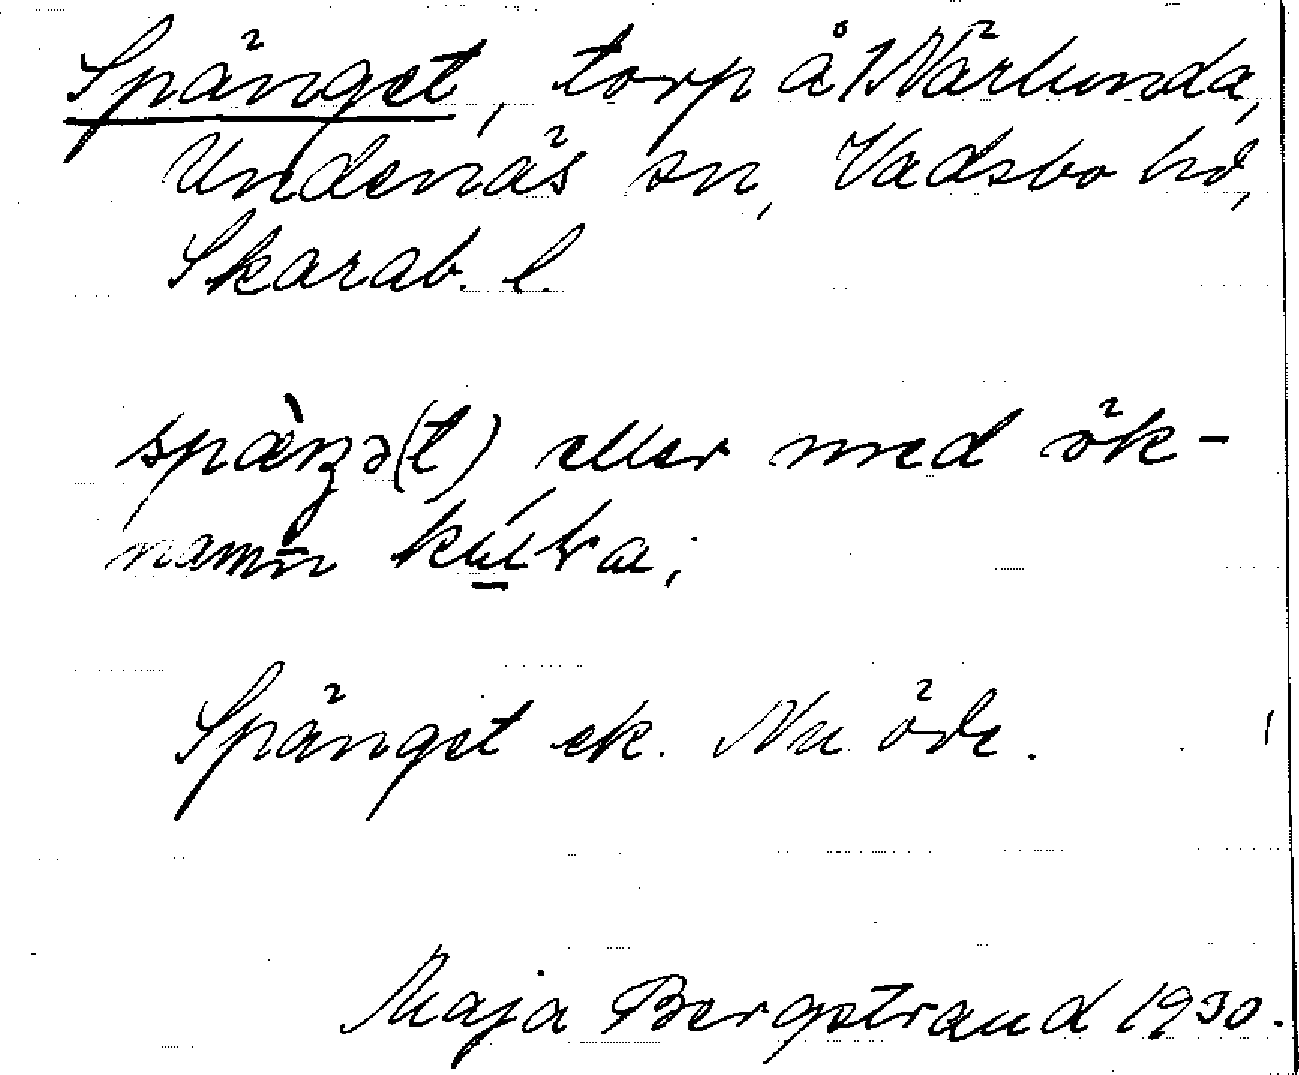 Spänget, torp å 1 Närlunda,
Undenäs sn, Vadsbo hd,
Skarab. l.
spæ̀ŋə(t) eller med ök-
namn
Spänget ek. Nu öde.
Maja Bergstrand 1930.